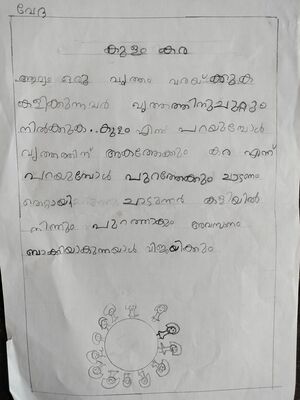 വേദ
കുളം കര
ആദ്യം ഒരു വൃത്തം വരയ്ക്കുക
കളിക്കുന്നവർ വൃത്തത്തിനുചുറ്റും
നിൽക്കുക.. കുളം എന്ന് പറയുമ്പോൾ
വൃത്തത്തിന് അകത്തേക്കും കര എന്ന്
പറയുമ്പോൾ പുറത്തേക്കും ചാടണം
തെറ്റായി ചാടുന്നവർ കളിയിൽ
നിന്നും പുറത്താകും അവസാനം
ബാക്കിയാകുന്നയാൾ വിജയിക്കും